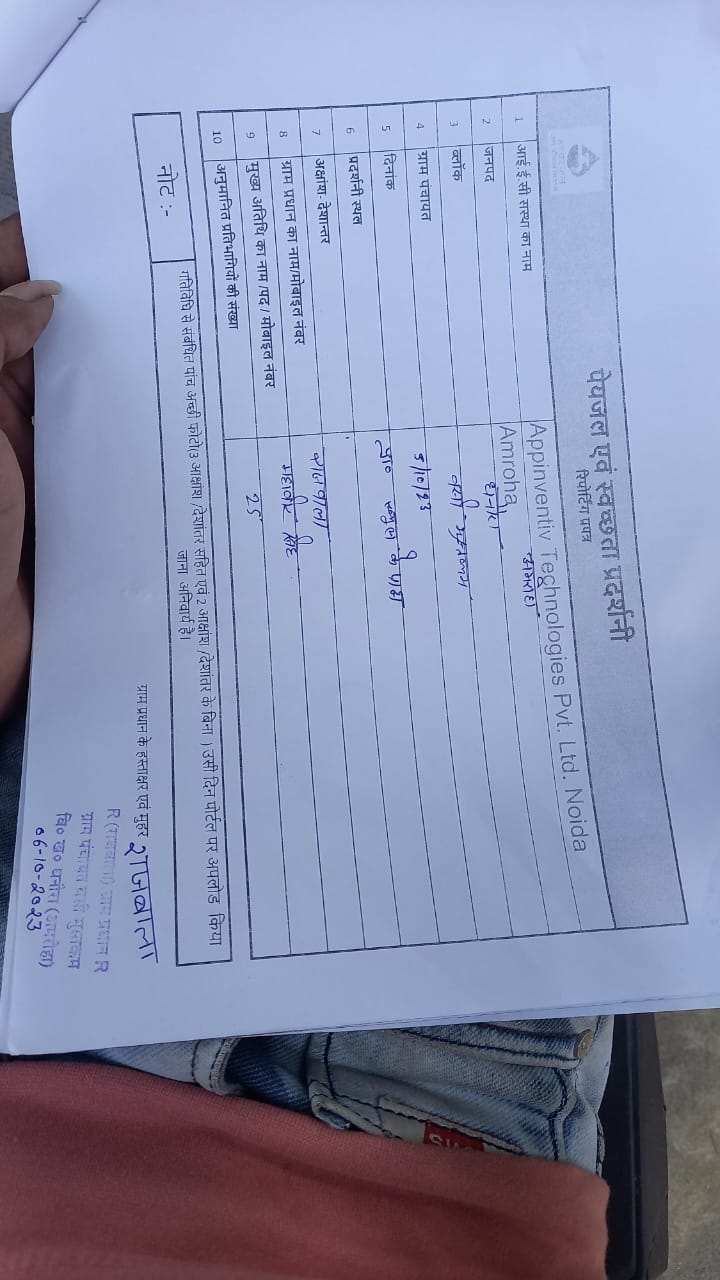 पेयजल एवं स्वच्छता प्रदर्शनी
रिपोर्टिंग प्रपत्र
1 आई ई सी सस्था का नाम Appinventiv Technologies Pvt. Ltd. Noida
2 जनपद Amroha अमरोहा
3 ब्लॉक धनौरा
4 ग्राम पंचायत
5 दिनांक 5/10/23
6 प्रदर्शनी स्थल प्रा० स्कूल के पास
7 अक्षांश- देशान्तर
8 ग्राम प्रधान का नाम/मोबाइल नंबर राजबाला
9 मुख्य अतिथि का नाम /पद / मोबाइल नंबर महावीर सिंह
10 अनुमानित प्रतिभागियों की संख्या 25
नोट :- गतिविधि से संबंधित पांच अच्छी फोटो(3 आक्षांश /देशांतर सहित एवं 2 आक्षांश /देशांतर के बिना ) उसी दिन पोर्टल पर अपलोड किया
जाना अनिवार्य है।
ग्राम प्रधान के हस्ताक्षर एवं मुहर राजबाला
R (राजबाला) ग्राम प्रधान R
ग्राम पंचायत
वि० ख० धनौरा (अमरोहा)
06-10-2023